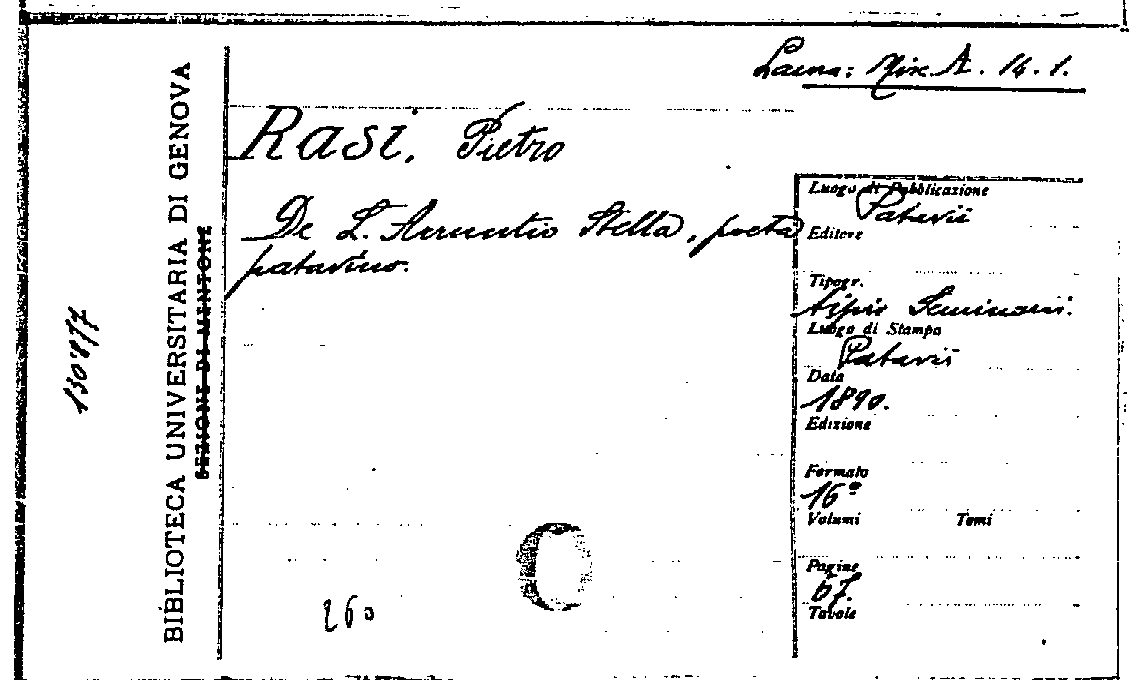 Laura: Misc A. 14. 1.
Rasi, Pietro
De L. Arruntio Stella, poeta
patavino.
BIBLIOTECA UNIVERSITARIA DI GENOVA
SEZIONE DI MENTONE
130877
Luogo di Pubblicazione
Patavii
Editore
Tipogr.
typis Seminarii.
Luogo di Stampa
Patavii
Data
1890.
Edizione
Formato
16º
Volumi Tomi
Pagine
67.
Tavole
260